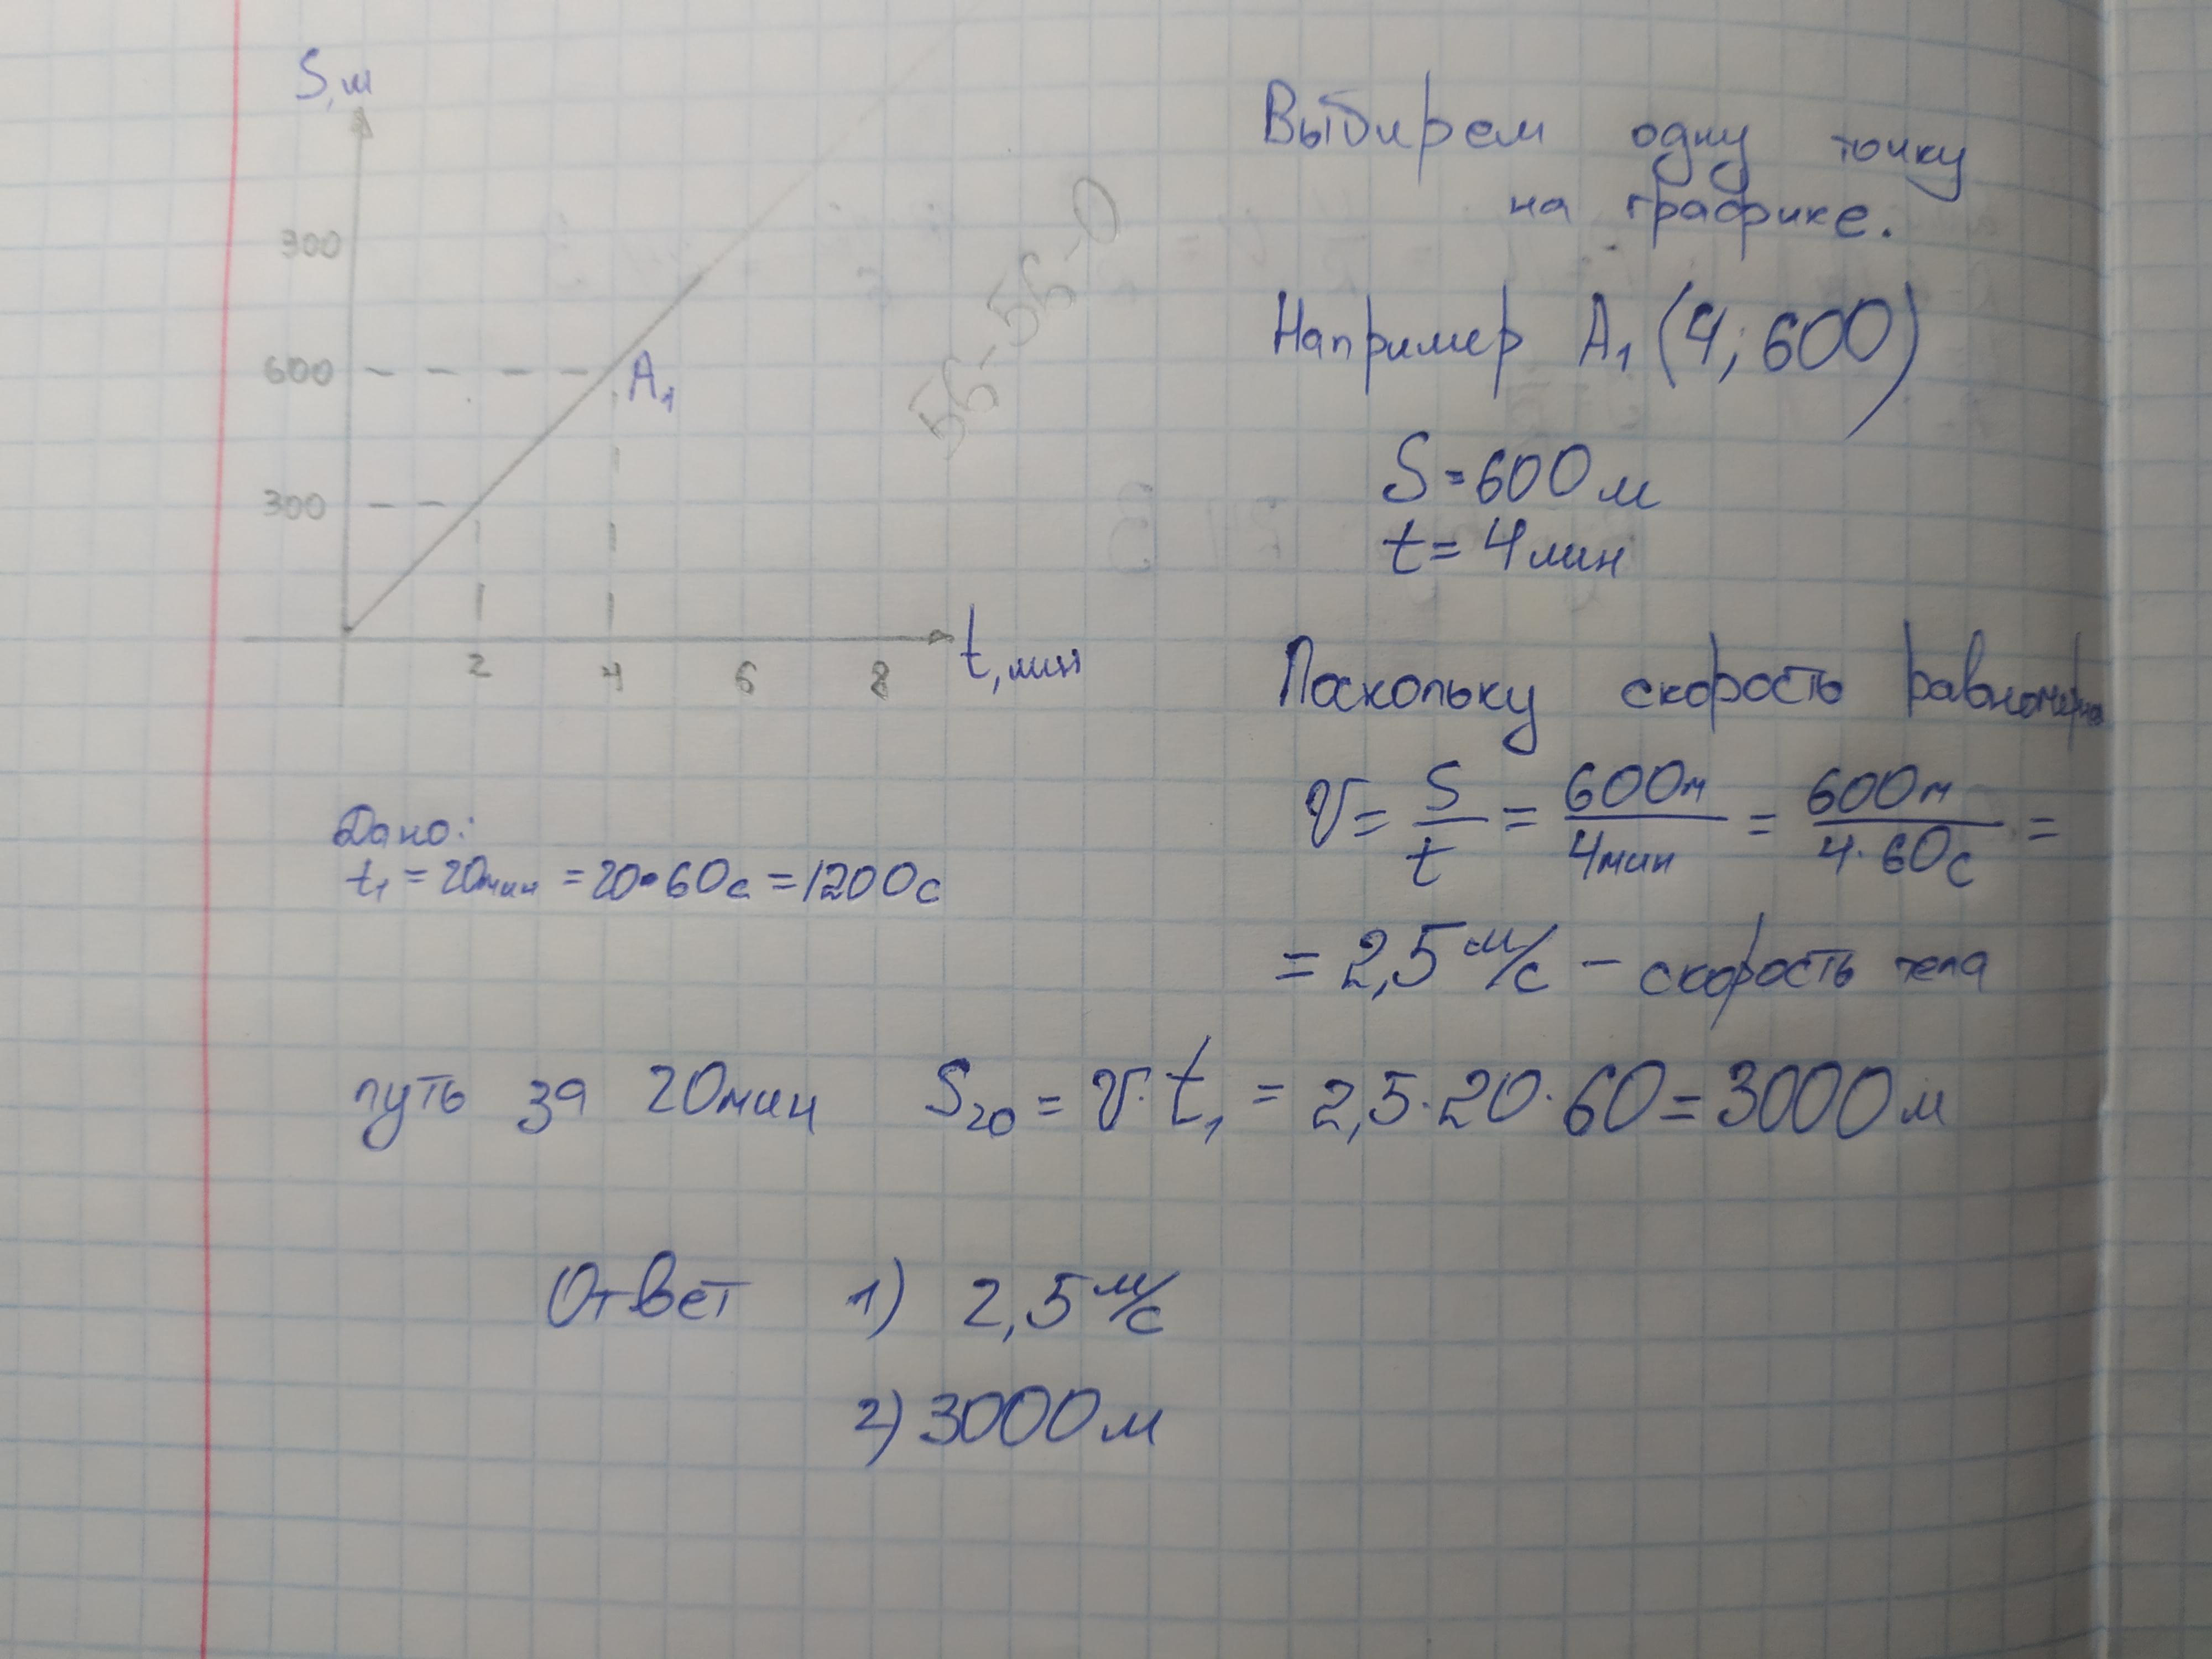 S,м
900
600
A₁
300
2
4
6
8
t, мин
56-56-0
Выбирем одну точку
на графике.
Например A₁ (4; 600)
S = 600 м
t = 4 мин
Поскольку скорость равномерна
V = S/t = 600м/4мин = 600м/4·60с =
= 2,5 м/с – скорость тела
Дано:
t₁ = 20мин = 20•60с = 1200с
путь за 20мин S₂₀ = V·t₁ = 2,5·20·60 = 3000 м
Ответ 1) 2,5 м/с
2) 3000 м